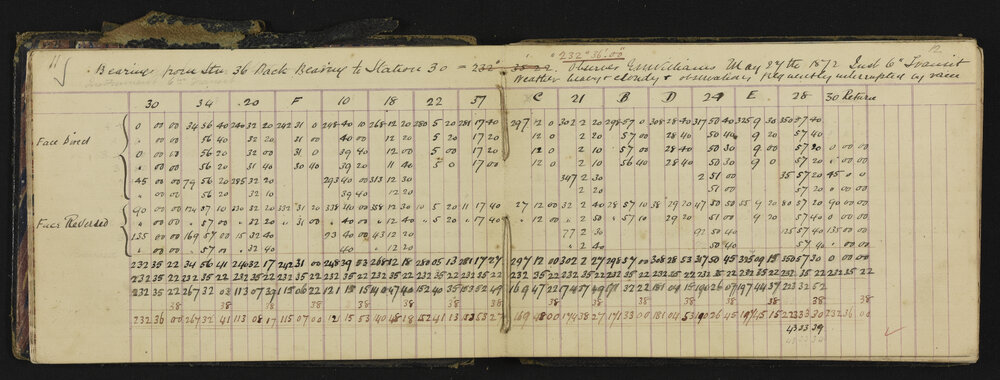 11
12
232° 36' 00"
Bearings from Stn 36 Back Bearing to Station 30 = Observer May 27th 1872 Inst 6" Transit
Weather heavy & cloudy & observations frequently interrupted by rain
30 34 20 F 10 18 22 37 C 21 B D 29 E 28 30 Return
Face Direct
0 00 00 34 56 40 240 32 20 242 31 0 248 40 10 268 12 20 280 5 20 281 17 40 297 12 0 302 2 20 298 57 0 308 28 40 317 50 40 325 9 30 350 57 40
" 00 00 56 40 32 20 31 00 40 00 12 20 5 20 17 20 12 0 2 20 57 00 28 40 50 40 9 20 57 40
0 00 00 56 20 32 00 31 0 39 40 12 00 5 00 17 20 12 0 2 10 57 00 28 40 50 30 9 00 57 20 0 00 00
" 00 00 56 20 31 40 30 40 39 20 11 40 5 0 17 00 12 0 2 10 56 40 28 40 50 30 9 0 57 20 " 00 00
45 00 00 79 56 20 285 32 20 293 40 00 313 12 30 347 2 30 2 51 00 35 57 20 45 0 0
" 00 00 56 20 32 10 39 40 12 20 2 20 51 00 57 20 0 00 00
Face Reversed
90 00 00 124 57 10 330 32 20 332 31 20 338 40 00 358 12 30 10 5 20 11 17 40 27 12 00 32 2 40 28 57 10 38 29 20 47 50 50 55 9 20 80 57 20 90 00 00
" 00 00 " 57 00 " 32 20 " 31 0 " 40 00 " 12 40 " 5 20 " 17 40 " 12 00 " 2 50 " 57 10 29 20 51 00 " 9 20 57 40 0 00 00
135 00 00 169 57 00 15 32 40 23 40 00 43 12 20 77 2 30 92 50 40 125 57 40 135 00 00
" 00 00 " 57 00 " 32 40 40 " 12 20 " 2 40 50 40 57 40 " 00 00
232 35 22 34 56 41 240 32 17 242 31 00 248 39 53 268 12 18 280 05 13 281 17 27 297 12 00 302 2 27 298 57 00 308 28 53 317 50 45 325 09 15 350 57 30 0 00 00
232 35 22 232 35 22 232 35 22 232 35 22 232 35 22 232 35 22 232 35 22 232 35 22 232 35 22 232 35 22 232 35 22 232 35 22 232 35 22 232 35 22 232 35 22
232 35 22 267 32 03 113 07 39 115 06 22 121 15 15 140 47 40 152 40 35 153 52 49 169 47 22 174 37 49 171 32 22 181 04 15 190 26 07 197 44 37 223 32 52
38 38 38 38 38 38 38 38 38 38 38 38 38 38
232 36 00 267 32 41 113 08 17 115 07 00 121 15 53 140 48 18 152 41 13 153 53 27 169 48 00 174 38 27 171 33 00 181 04 53 190 26 45 197 45 15 223 33 30 232 36 00
43 33 39